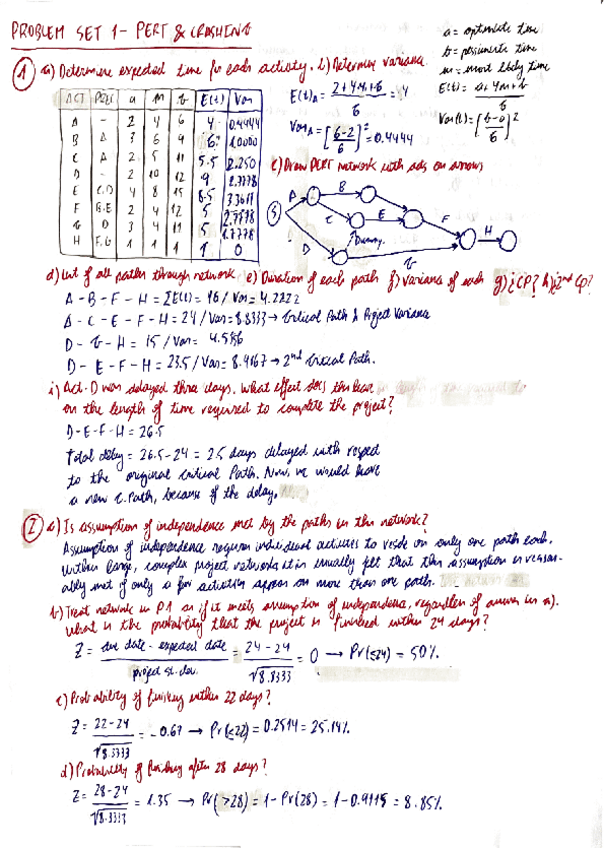 PROBLEM SET 1 - PERT & CRASHING
a = optimiste time
b = pessimiste time
m = most likely time
E(t) = a+4m+b / 6
Var(t) = [b-a / 6]²
1 a) Determine expected time for each activity. b) Determine variance.
ACT PRED a m b E(t) Var
A - 2 4 6 4 0.4444
B A 3 6 9 6 1.0000
C A 2 5 11 5.5 2.250
D - 2 10 12 9 2.7778
E C.D 4 8 15 8.5 3.3611
F B.E 2 4 12 5 2.7778
G D 3 4 11 5 1.7778
H F.G 1 1 1 1 0
E(t)A = 2+4·4+6 / 6 = 4
VarA = [6-2 / 6]² = 0.4444
c) Draw PERT network with acts on arrows
A B C E F D G H S
Dummy
d) List of all paths through network e) Duration of each path f) Variance of each g) ¿CP? h) ¿2nd CP?
A - B - F - H = ΣE(t) = 16 / Var = 4.2222
A - C - E - F - H = 24 / Var = 8.8333 → Critical Path & Project Variance
D - G - H = 15 / Var = 4.5556
D - E - F - H = 23.5 / Var = 8.9167 → 2nd Critical Path.
i) Act. D was delayed three days. What effect does this have
on the length of time required to complete the project?
D-E-F-H = 26.5
Total delay = 26.5 - 24 = 2.5 days delayed with respect
to the original critical Path. Now, we would have
a new C. Path, because of the delay.
2 a) Is assumption of independence met by the paths in this network?
Assumption of independence requires individual activities to reside on only one path each.
Within large, complex project networks it is usually felt that this assumption is reason-
ably met if only a few activities appear on more than one path.
b) Treat network in P1 as if it meets assumption of independence, regardless of answer in a).
What is the probability that the project is finished within 24 days?
Z = due date - expected date / project st. dev. = 24-24 / √8.8333 = 0 → Pr(≤24) = 50%.
c) Probability of finishing within 22 days?
Z = 22-24 / √8.8333 = -0.67 → Pr(≤22) = 0.2514 = 25.14%
d) Probability of finishing after 28 days?
Z = 28-24 / √8.8333 = 1.35 → Pr(>28) = 1-Pr(28) = 1-0.9115 = 8.85%